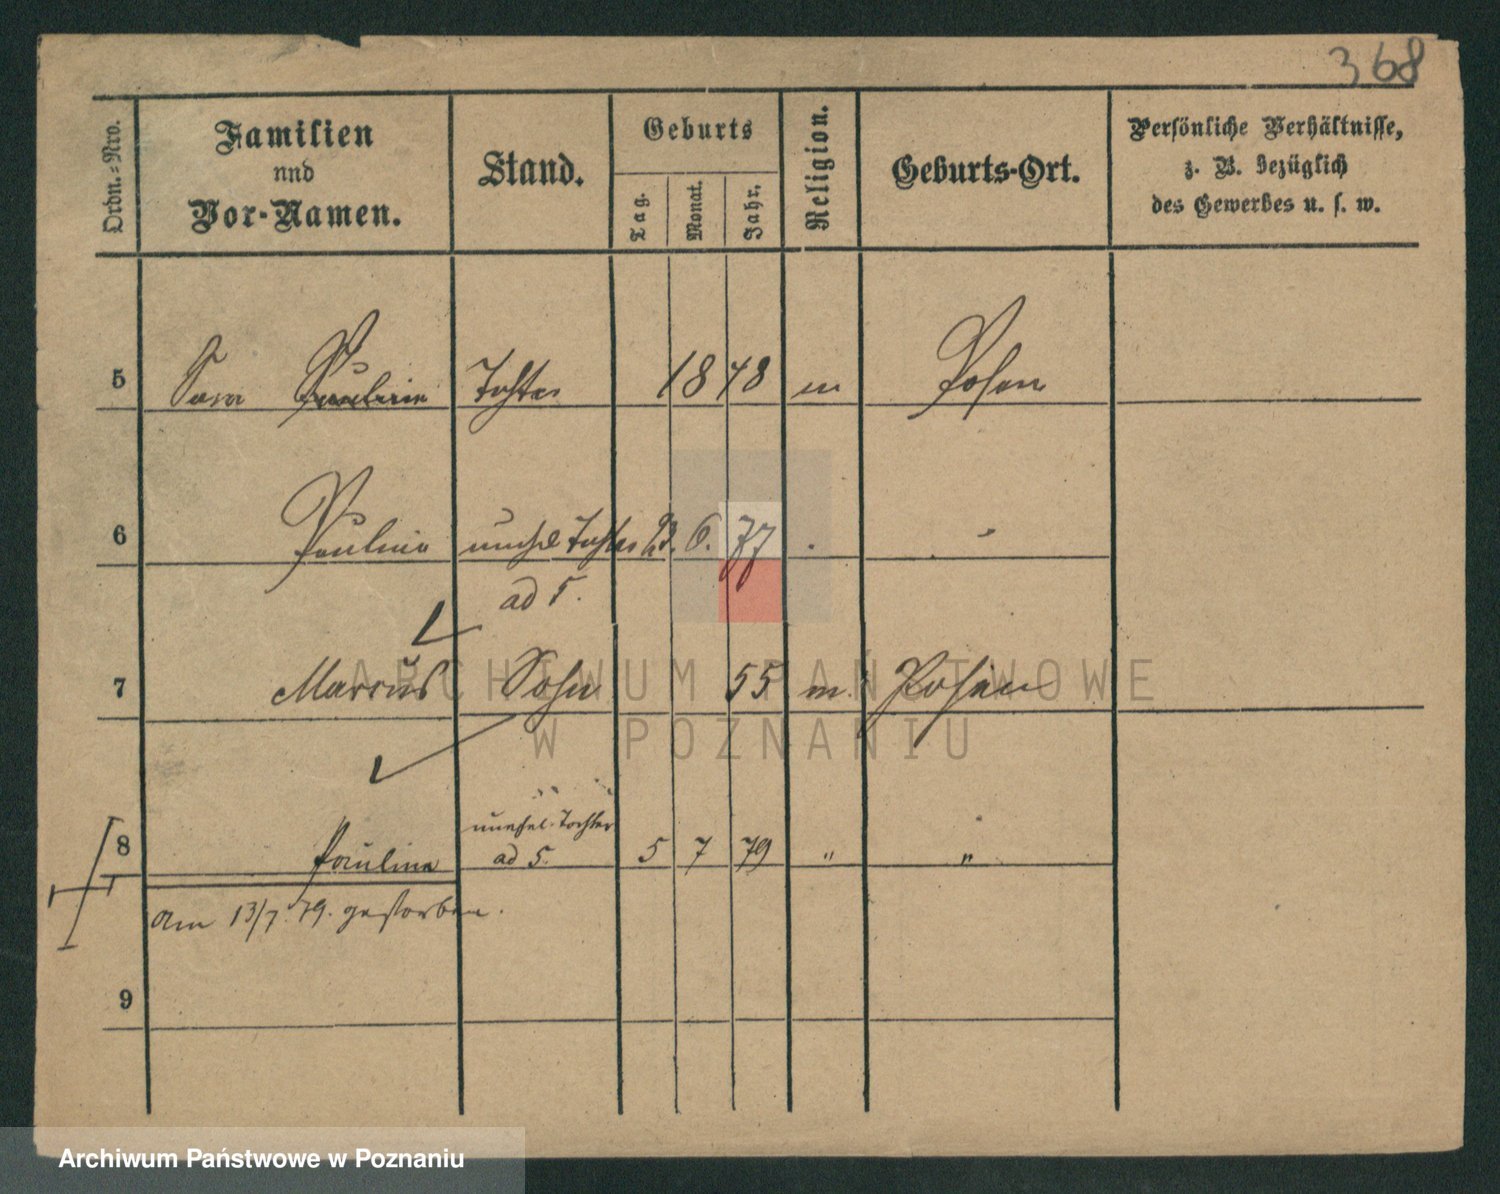 368
Ordn.-Nro.
Familien
und
Vor-Namen.
Stand.
Geburts
Tag.
Monat.
Jahr.
Religion.
Geburts-Ort.
Persönliche Verhältnisse,
z. B. bezüglich
des Gewerbes u. s. w.
5 Sara Pauline Tochter 1848 m Posen
6 Pauline unehel Tochter 23. 6. 77 "
ad 5.
7 Marcus Sohn 55 m. Posen
8 Pauline unehel. Tochter
ad 5. 5 7 79 " "
Am 13/7. 79. gestorben.
9
ARCHIWUM PAŃSTWOWE
W POZNANIU
Archiwum Państwowe w Poznaniu